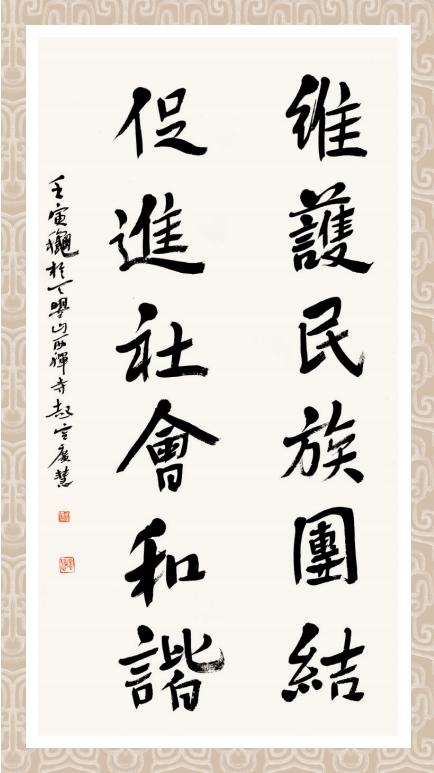 維護民族團結
促進社會和諧
壬寅龝於下嬰山西禪寺赵雲廣慧